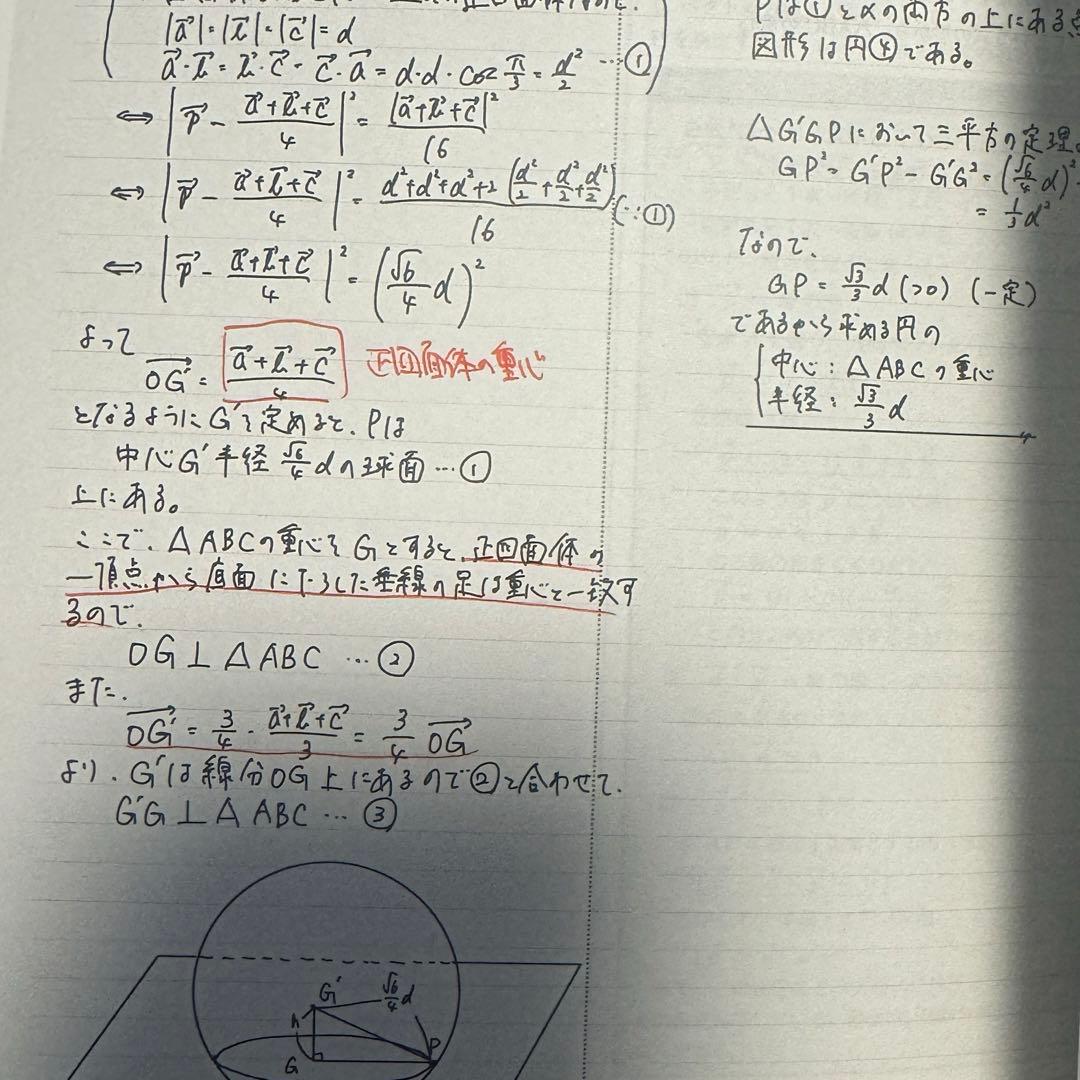 |a⃗|=|b⃗|=|c⃗|=d
a⃗・b⃗=b⃗・c⃗=c⃗・a⃗=d・d・cos π/3=d²/2 …①
⇔ |p⃗-(a⃗+b⃗+c⃗)/4|²=|a⃗+b⃗+c⃗|²/16
⇔ |p⃗-(a⃗+b⃗+c⃗)/4|²=(d²+d²+d²+2(d²/2+d²/2+d²/2))/16 (∵①)
⇔ |p⃗-(a⃗+b⃗+c⃗)/4|²=(√6/4 d)²
よって
OG'⃗=(a⃗+b⃗+c⃗)/4 正四面体の重心
となるようにG'を定めると、Pは
中心G' 半径 √6/4 dの球面…①
上にある。
ここで、△ABCの重心をGとすると、正四面体の
一頂点から底面に下ろした垂線の足は重心と一致す
るので、
OG⊥△ABC …②
また、
OG'⃗=3/4・(a⃗+b⃗+c⃗)/3=3/4 OG⃗
より、G'は線分OG上にあるので②と合わせて、
G'G⊥△ABC …③
G'
√6/4 d
h
P
G
Pは①とαの両方の上にある点
図形は円④である。
△G'GPにおいて三平方の定理
GP²=G'P²-G'G²=(√6/4 d)²
=1/3 d²
なので、
GP=√3/3 d (>0) (一定)
であるから求める円の
中心:△ABCの重心
半径:√3/3 d